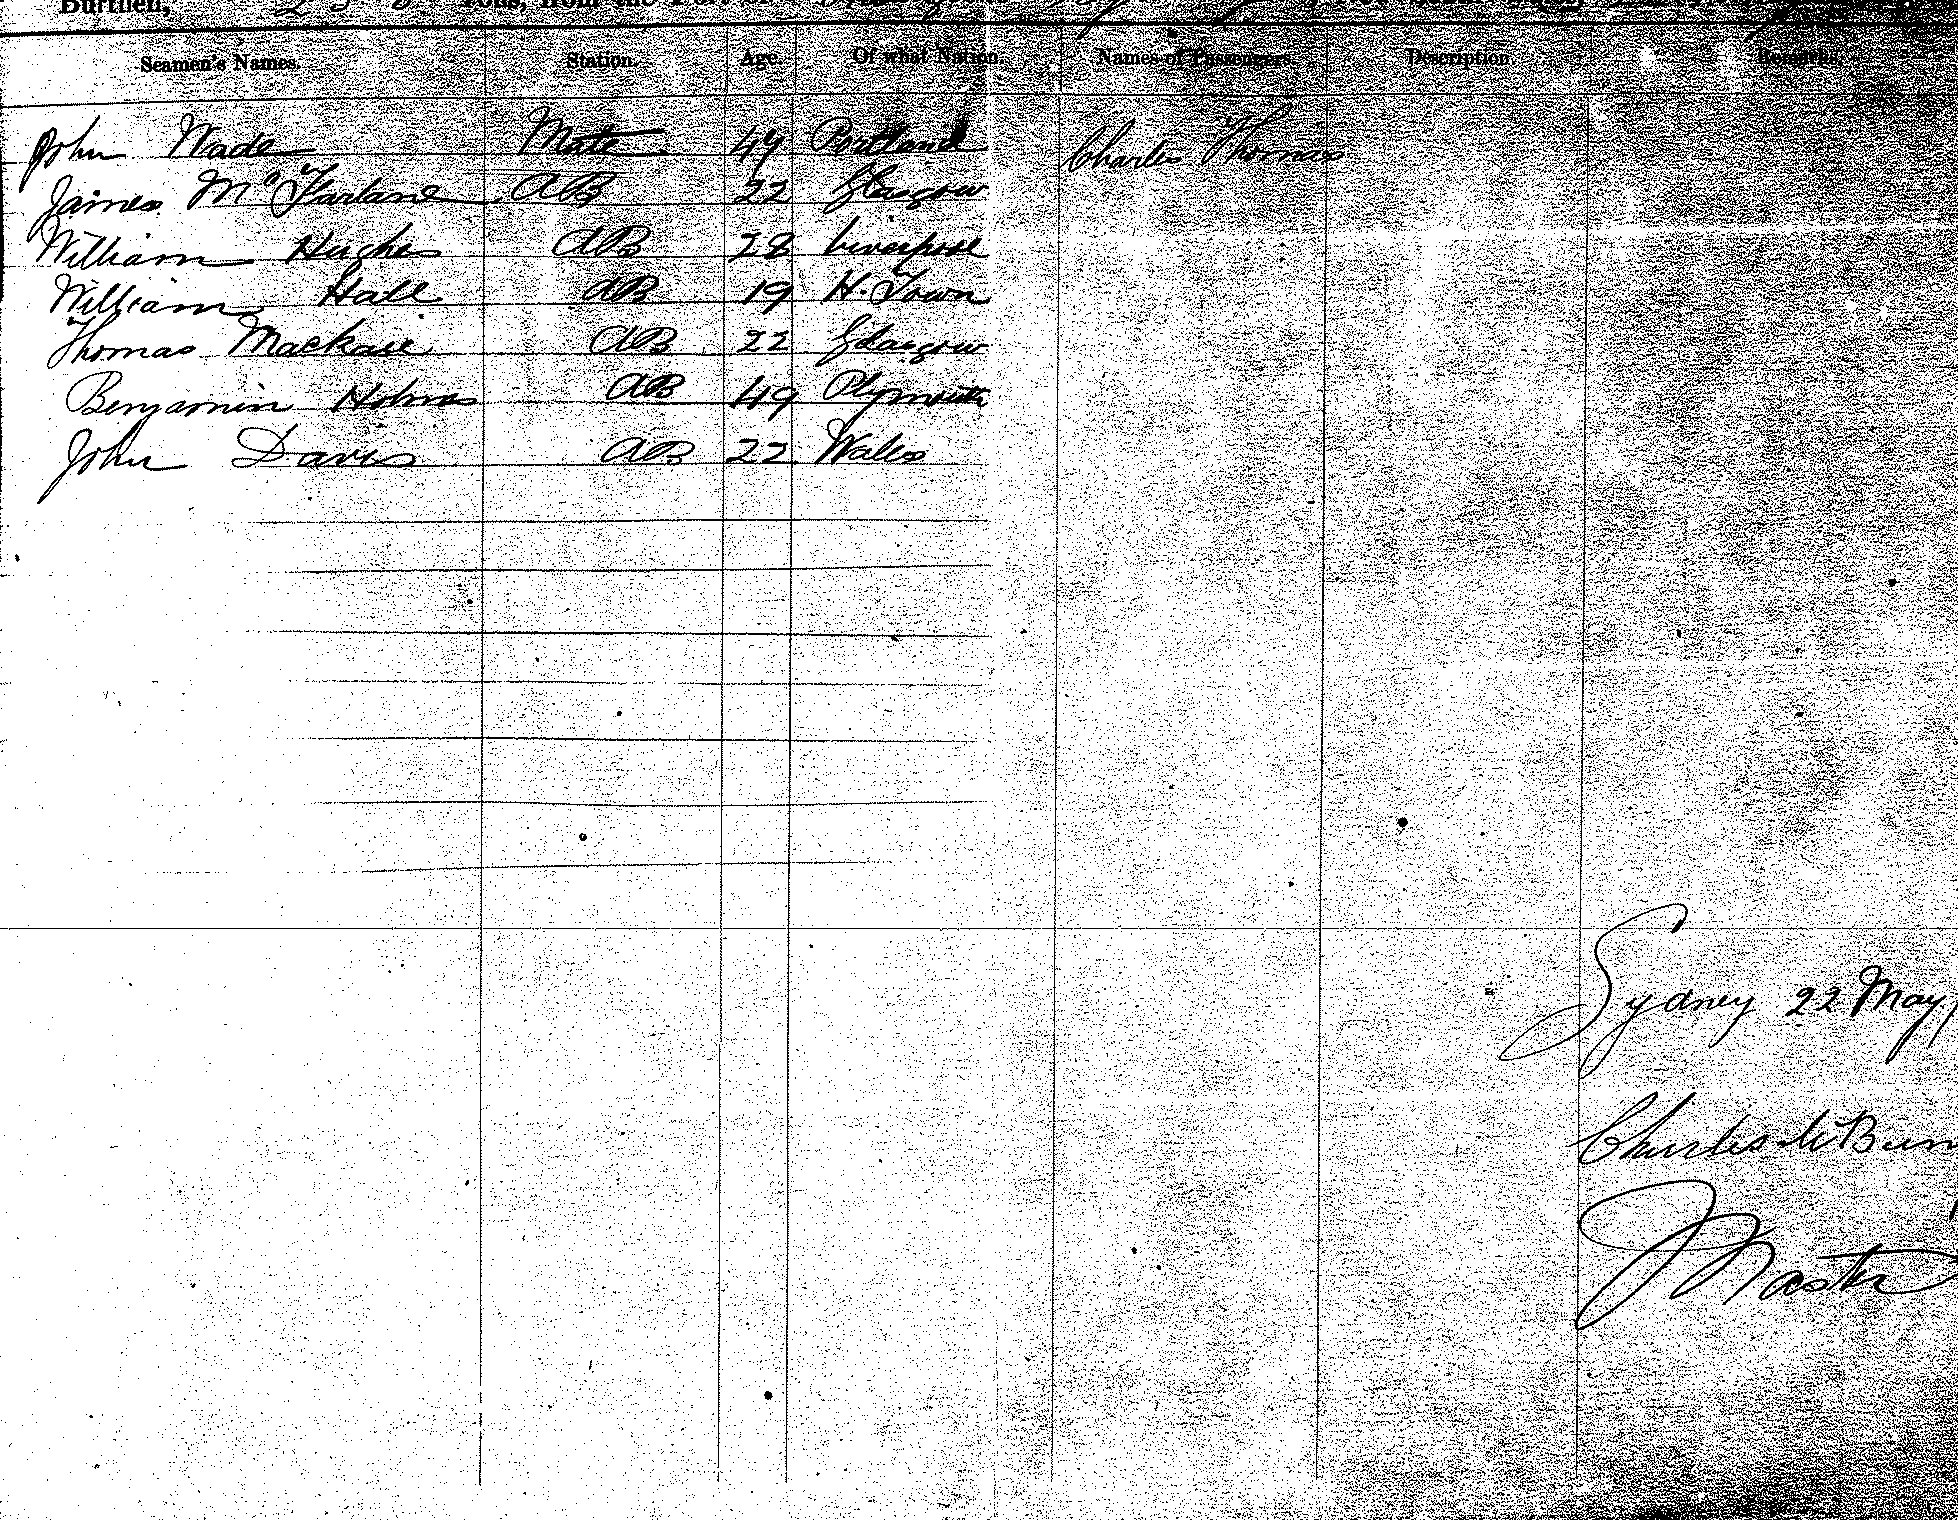 Burthen, Tons, from the Port of
Seamen's Names. Station. Age. Of what Nation. Names of Passengers. Description. Remarks.
John Wade Mate 44 Portland Charles Thomas
James McFarlane AB 22 Glasgow
William Hughes AB 28 Liverpool
William Hall AB 19 H. Town
Thomas Mackase AB 22 Glasgow
Benjamin Holms AB 49 Plymouth
John Davis AB 22 Wales
Sydney 22 May
Charles
Master